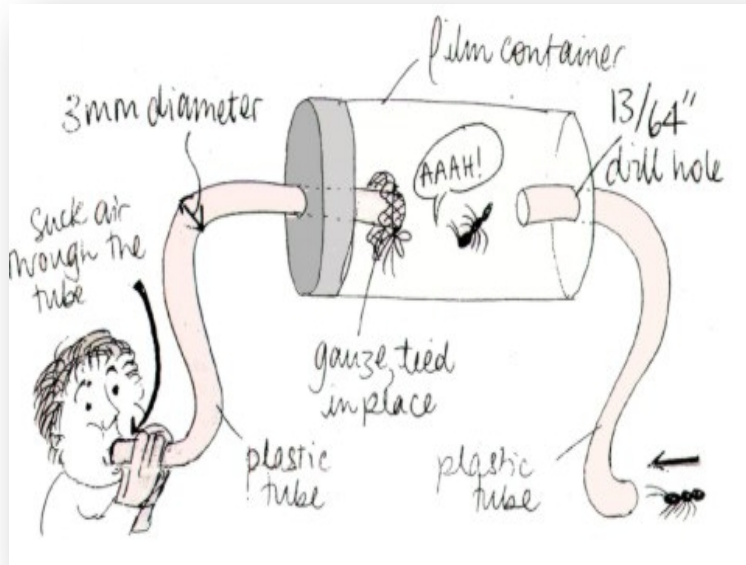 film container
3mm diameter
13/64"
drill hole
AAAH!
suck air
through the
tube
gauze, tied
in place
plastic
tube
plastic
tube